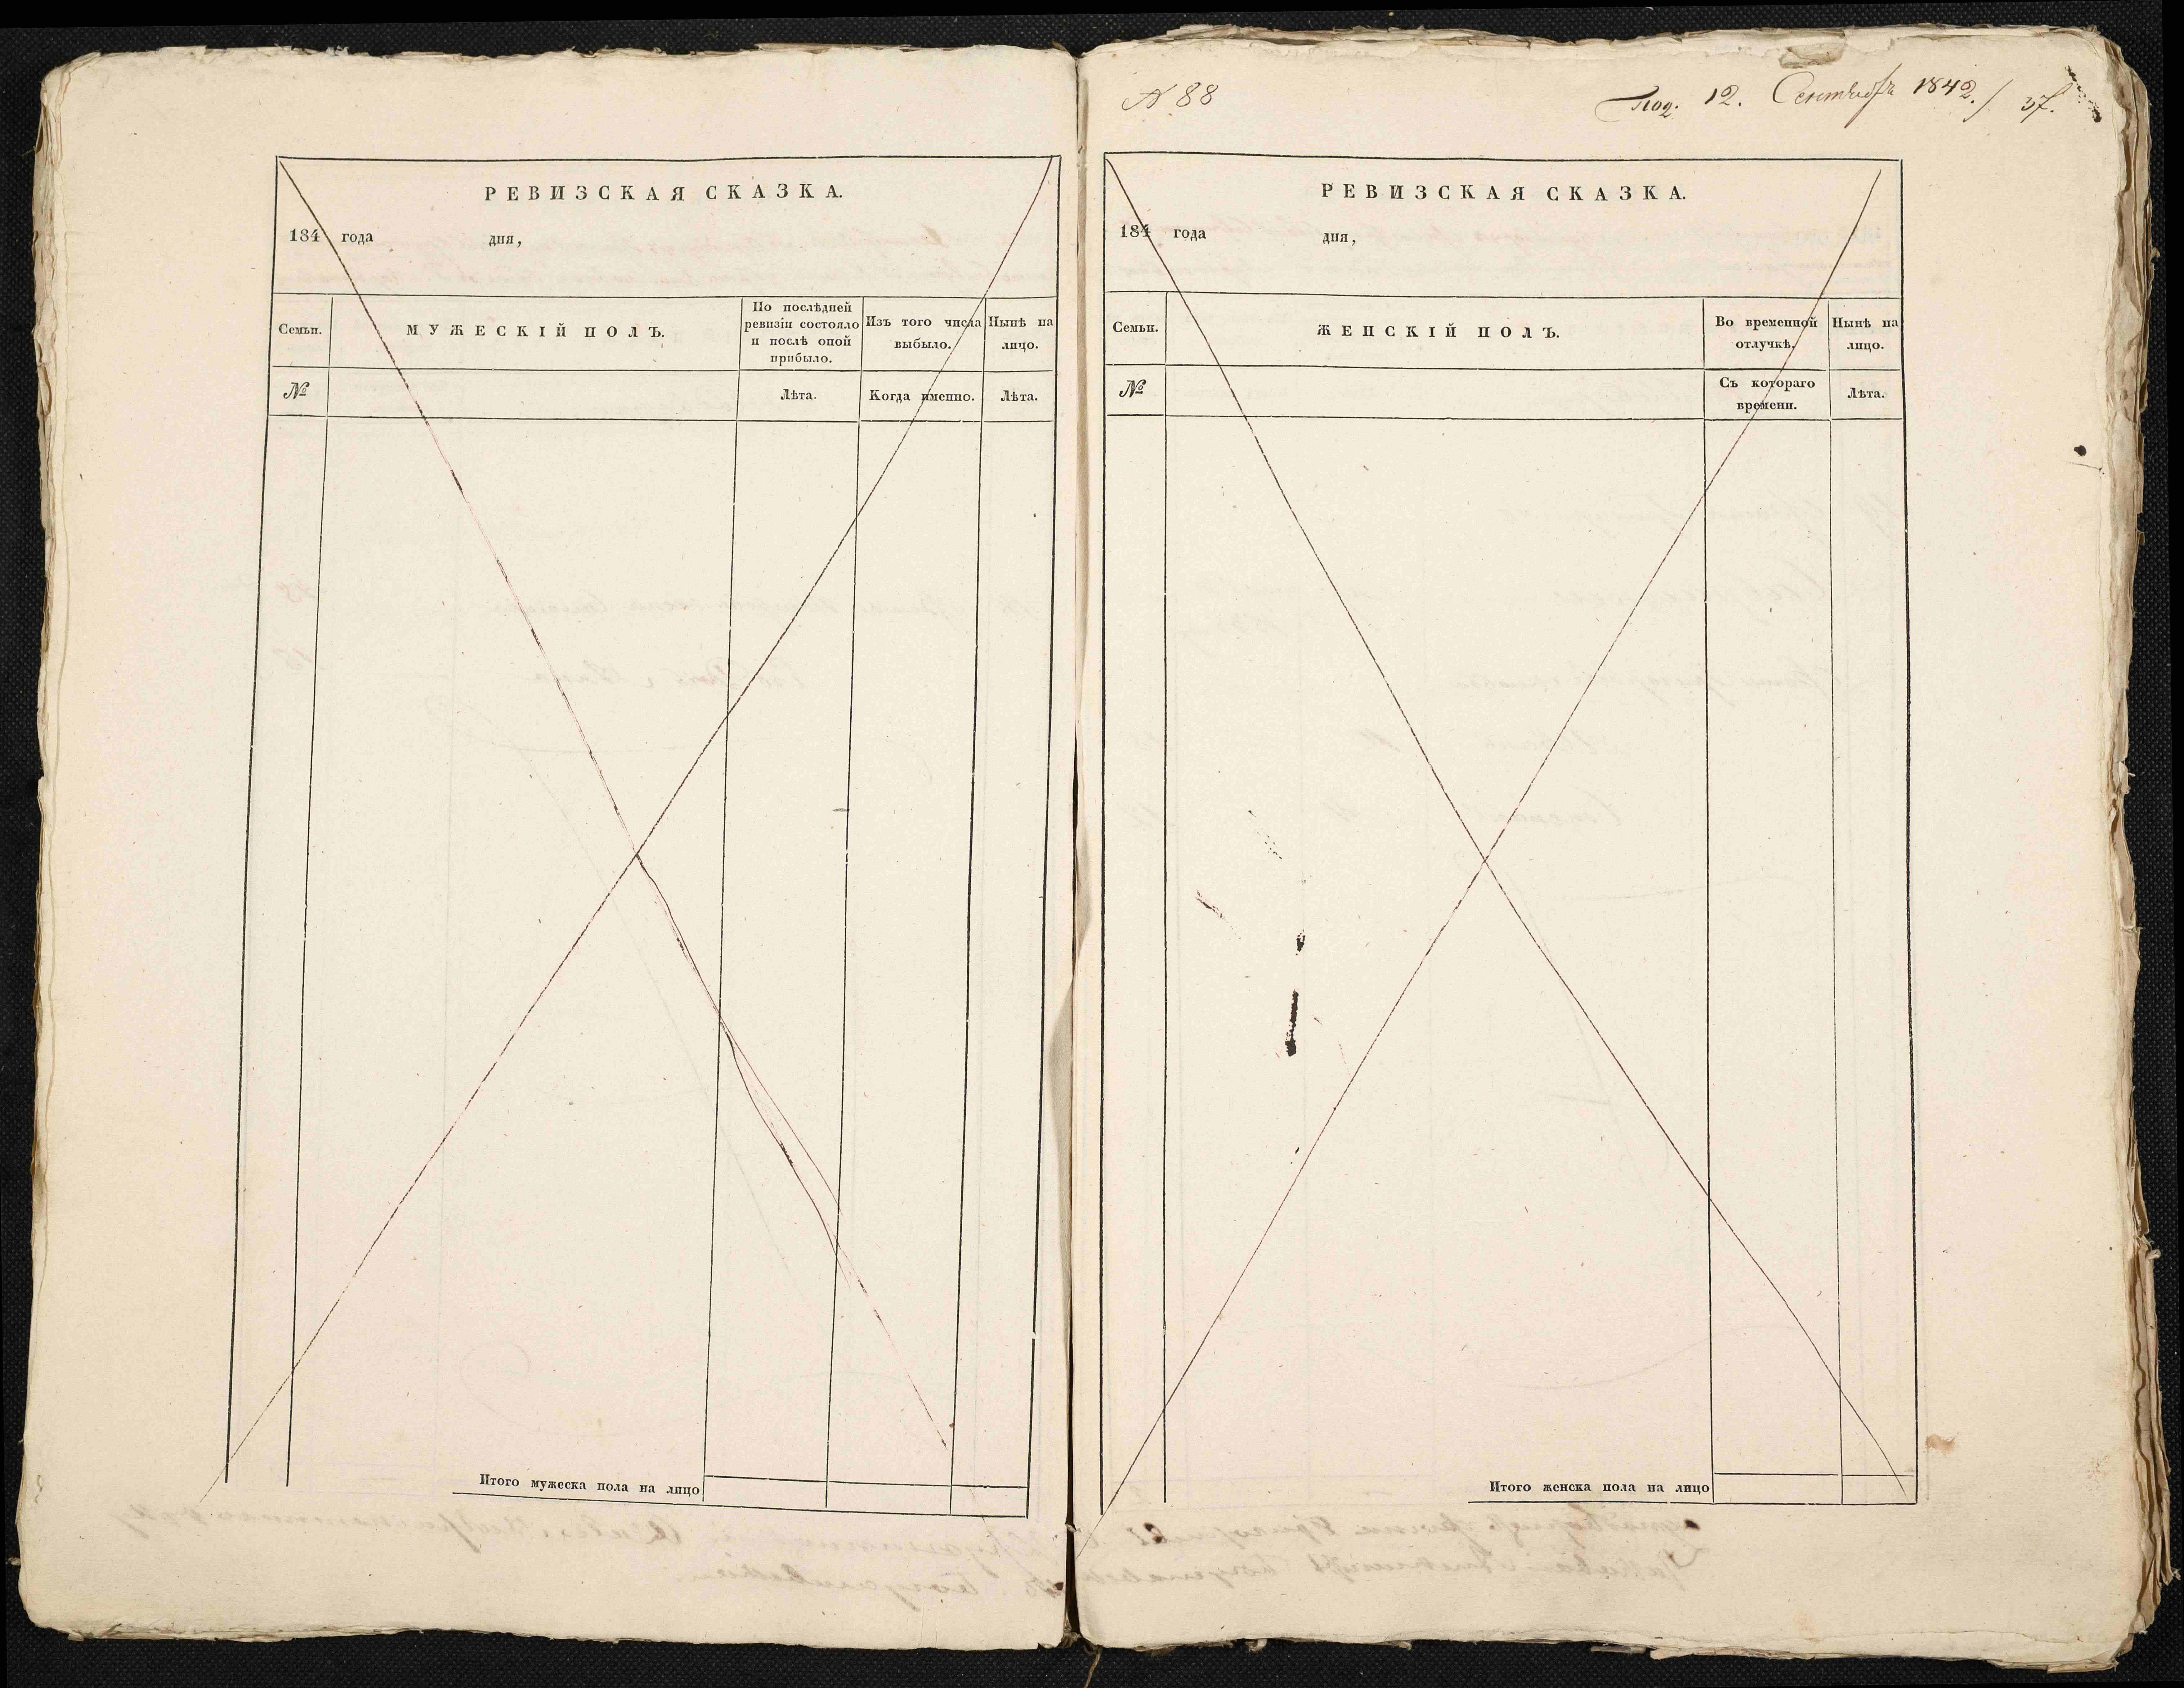 РЕВИЗСКАЯ СКАЗКА.
184 года дня,
Семьи.
МУЖЕСКІЙ ПОЛЪ.
По послѣдней
ревизіи состояло
и послѣ оной
прибыло.
Изъ того числа
выбыло.
Нынѣ на
лицо.
№
Лѣта.
Когда именно.
Лѣта.
Итого мужеска пола на лицо
№ 88
Под. 12. Сентября 1842. / 37.
РЕВИЗСКАЯ СКАЗКА.
184 года дня,
Семьи.
ЖЕНСКІЙ ПОЛЪ.
Во временной
отлучкѣ.
Нынѣ на
лицо.
№
Съ котораго
времени.
Лѣта.
Итого женска пола на лицо